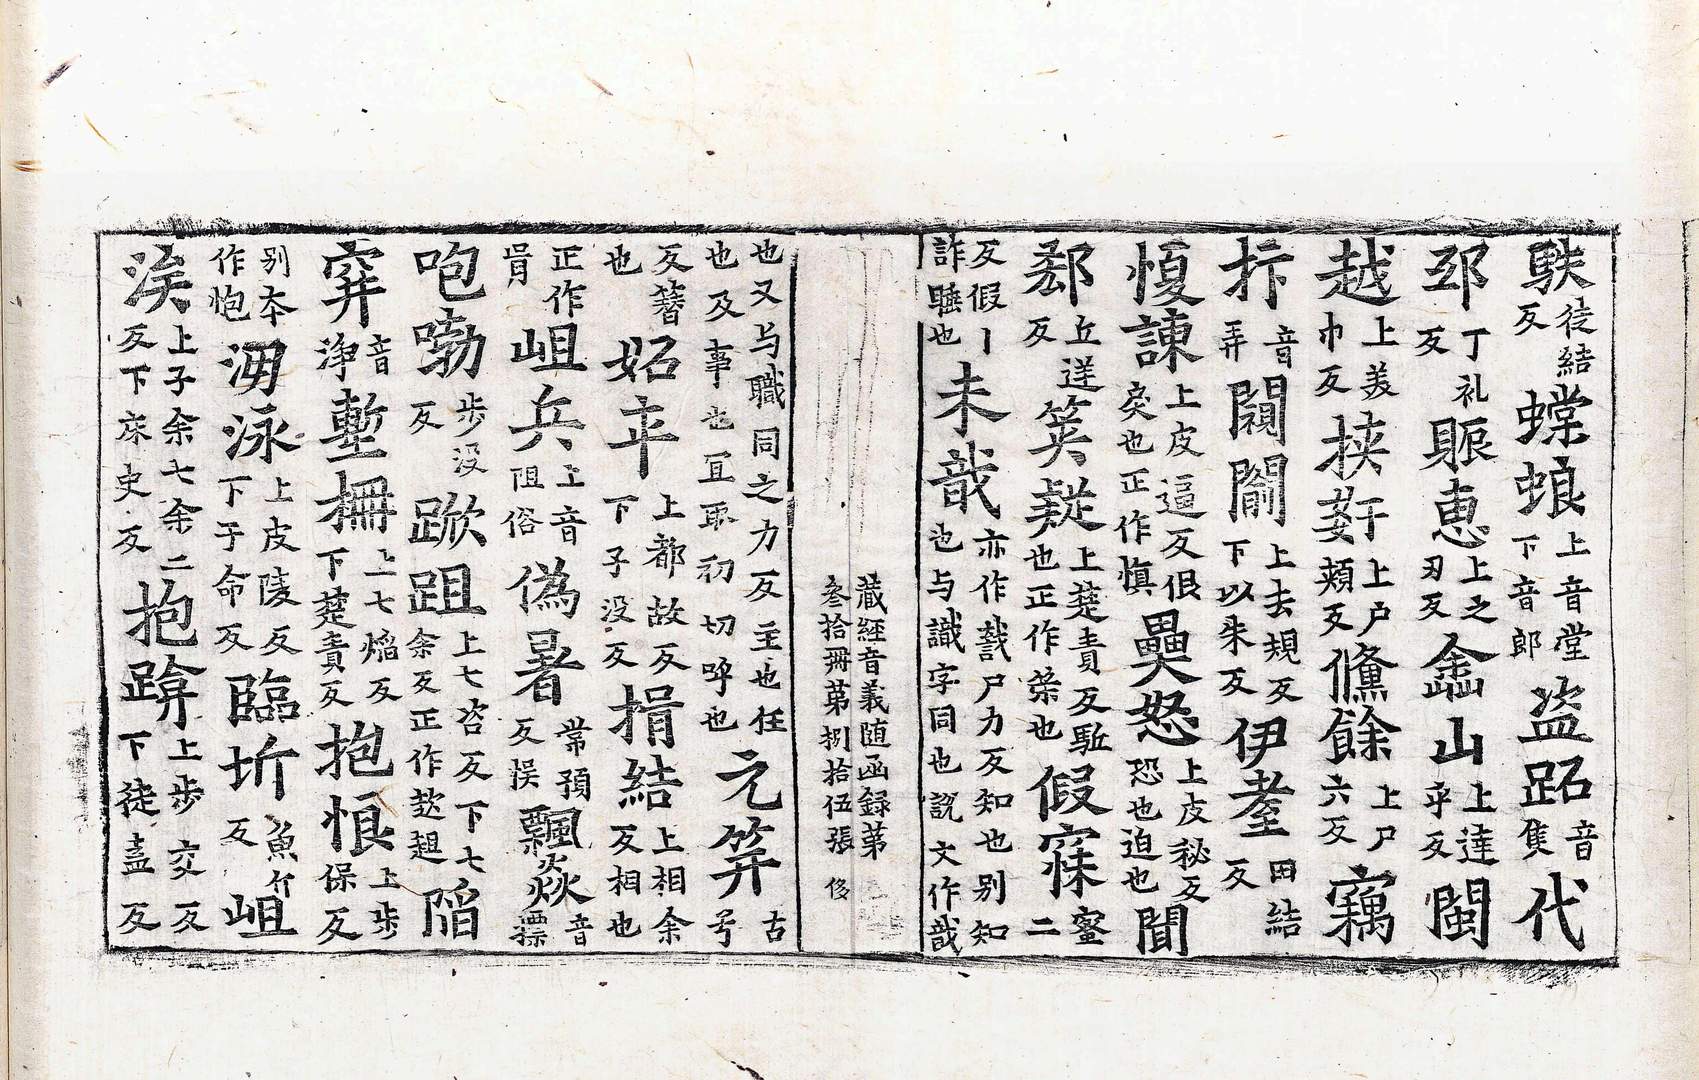 䭿徒結反螳蜋上音堂下音郎盗跖音隻代
郅丁礼反賑恵上之刃反𨥛山上達乎反閩
越上羙巾反挟𡜟上户頰反㒝餘上尸六反竊
抃音弄闚闟上去規反下以朱反伊耋田結反
愎諌上皮逼反佷戾也正作慎㒍怒上皮秘反恐也迫也聞
郄丘逆反筴疑上楚責反䭾也正作䇲也假寐二蜜
反假丨詐睡也未㦲亦作㦲尸力反知也别知也与識字同也説文作㦲
藏經音義随函録第叄拾冊第捌拾伍張 侈
也又与職同之力反主也任也及事也冝取初切呼也元筭古号
反簮也妬年上都故反下子没反揖結上相余反相也
正作㫬岨兵上音阻俗偽暑常預反悮飄焱音漂
咆㘍步没反蹴跙上七咨反下七余反正作趑趄䧟
穽音浄塹栅上七焔反下楚責反抱恨上步保反
别夲作怉沕泳上皮陵反下于命反臨圻魚斤反岨
涘上子余七余二反下床史反抱踰上步交反下徒盍反